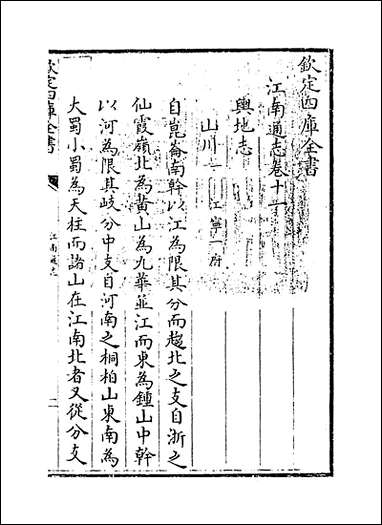 欽定四庫全書
江南通志卷十一
輿地志
山川一 江寧一府
自崑崙南幹以江為限其分而趨北之支自浙之
仙霞嶺北為黄山為九華並江而東為鍾山中幹
以河為限其岐分中支自河南之桐柏山東南為
大蜀小蜀為天柱而諸山在江南北者又從分支
欽定四庫全書
江南通志
一